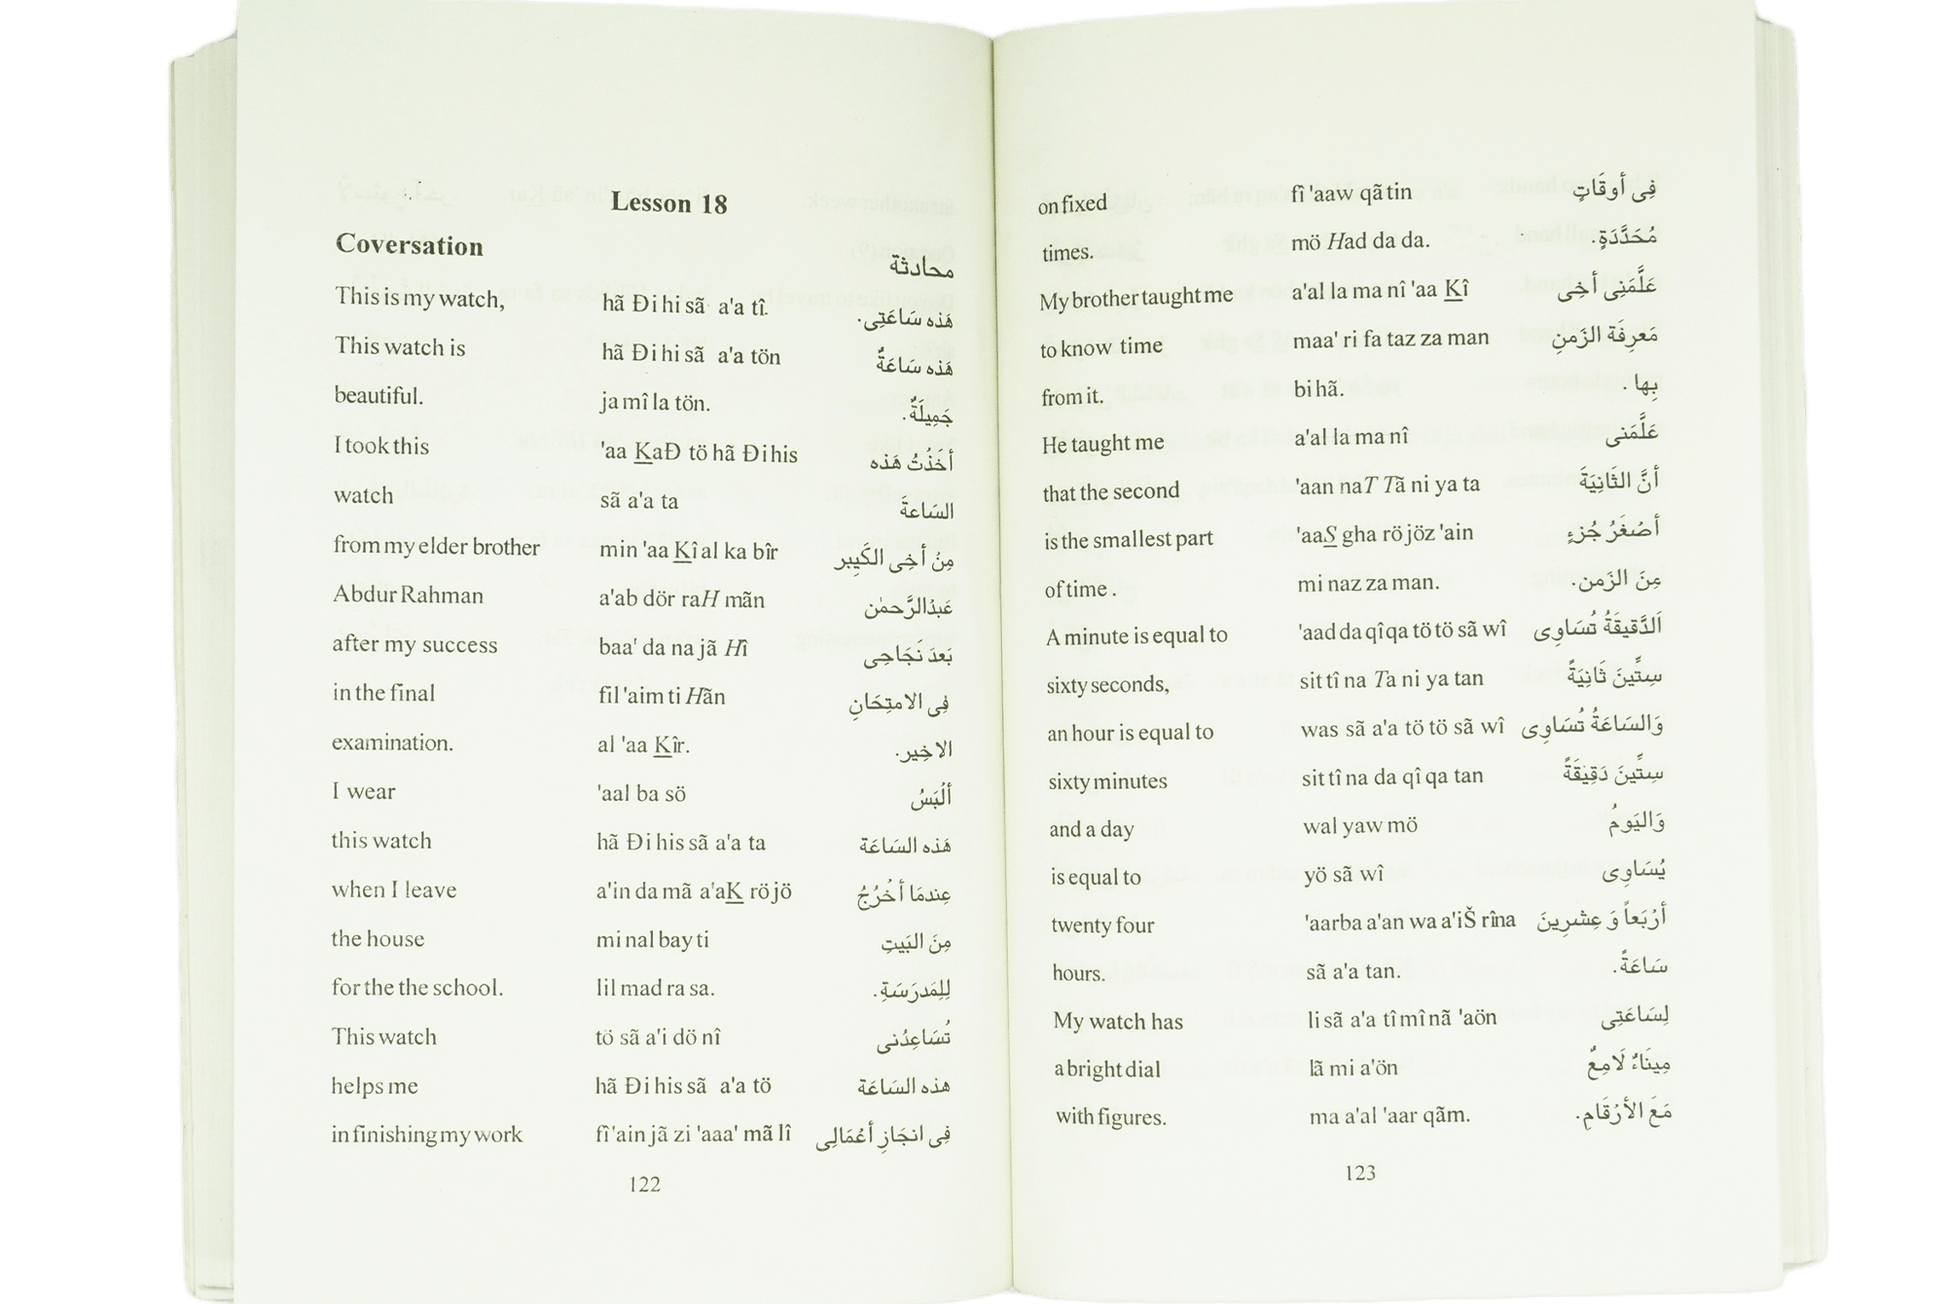 Lesson 18
Coversation محادثة
This is my watch, hã Đi hi sã a'a tî. هَذه سَاعَتِى.
This watch is hã Đi hi sã a'a tön هَذه سَاعَةٌ
beautiful. ja mî la tön. جَمِيلَةٌ.
I took this 'aa KaĐ tö hã Đi his أخَذْتُ هَذه
watch sã a'a ta السَاعةَ
from my elder brother min 'aa Kî al ka bîr مِنْ أخِى الكَبِير
Abdur Rahman a'ab dör raH mãn عَبدُالرَّحمٰن
after my success baa' da na jã Hî بَعدَ نَجَاحِى
in the final fil 'aim ti Hãn فِى الامتِحَانِ
examination. al 'aa Kîr. الاخِير.
I wear 'aal ba sö ألْبَسُ
this watch hã Đi his sã a'a ta هَذه السَاعَة
when I leave a'in da mã a'aK rö jö عِندمَا أخْرُجُ
the house mi nal bay ti مِنَ البَيتِ
for the the school. lil mad ra sa. لِلمَدرَسَةِ.
This watch tö sã a'i dö nî تُسَاعِدُنى
helps me hã Đi his sã a'a tö هذه السَاعَة
in finishing my work fî 'ain jã zi 'aaa' mã lî فِى انجَازِ أعْمَالِى
122
on fixed fî 'aaw qã tin فِى أوقَاتٍ
times. mö Had da da. مُحَدَّدَةٍ.
My brother taught me a'al la ma nî 'aa Kî عَلَّمَنِى أخِى
to know time maa' ri fa taz za man مَعرِفَة الزَمنِ
from it. bi hã. بِها .
He taught me a'al la ma nî عَلَّمَنى
that the second 'aan naT Tã ni ya ta أنَّ الثَانِيَةَ
is the smallest part 'aaS gha rö jöz 'ain أصْغَرُ جُزءٍ
of time . mi naz za man. مِنَ الزَمن.
A minute is equal to 'aad da qî qa tö tö sã wî اَلدَّقيقَةُ تُسَاوِى
sixty seconds, sit tî na Ta ni ya tan سِتِّينَ ثَانِيَةً
an hour is equal to was sã a'a tö tö sã wî وَالسَاعَةُ تُسَاوِى
sixty minutes sit tî na da qî qa tan سِتِّينَ دَقِيقَةً
and a day wal yaw mö وَاليَومُ
is equal to yö sã wî يُسَاوِى
twenty four 'aarba a'an wa a'iŠ rîna أرْبَعاً وَ عِشرِينَ
hours. sã a'a tan. سَاعَةً.
My watch has li sã a'a tî mî nã 'aön لِسَاعَتِى
a bright dial lã mi a'ön مِينَاءٌ لَامِعٌ
with figures. ma a'al 'aar qãm. مَعَ الأرْقَامِ.
123